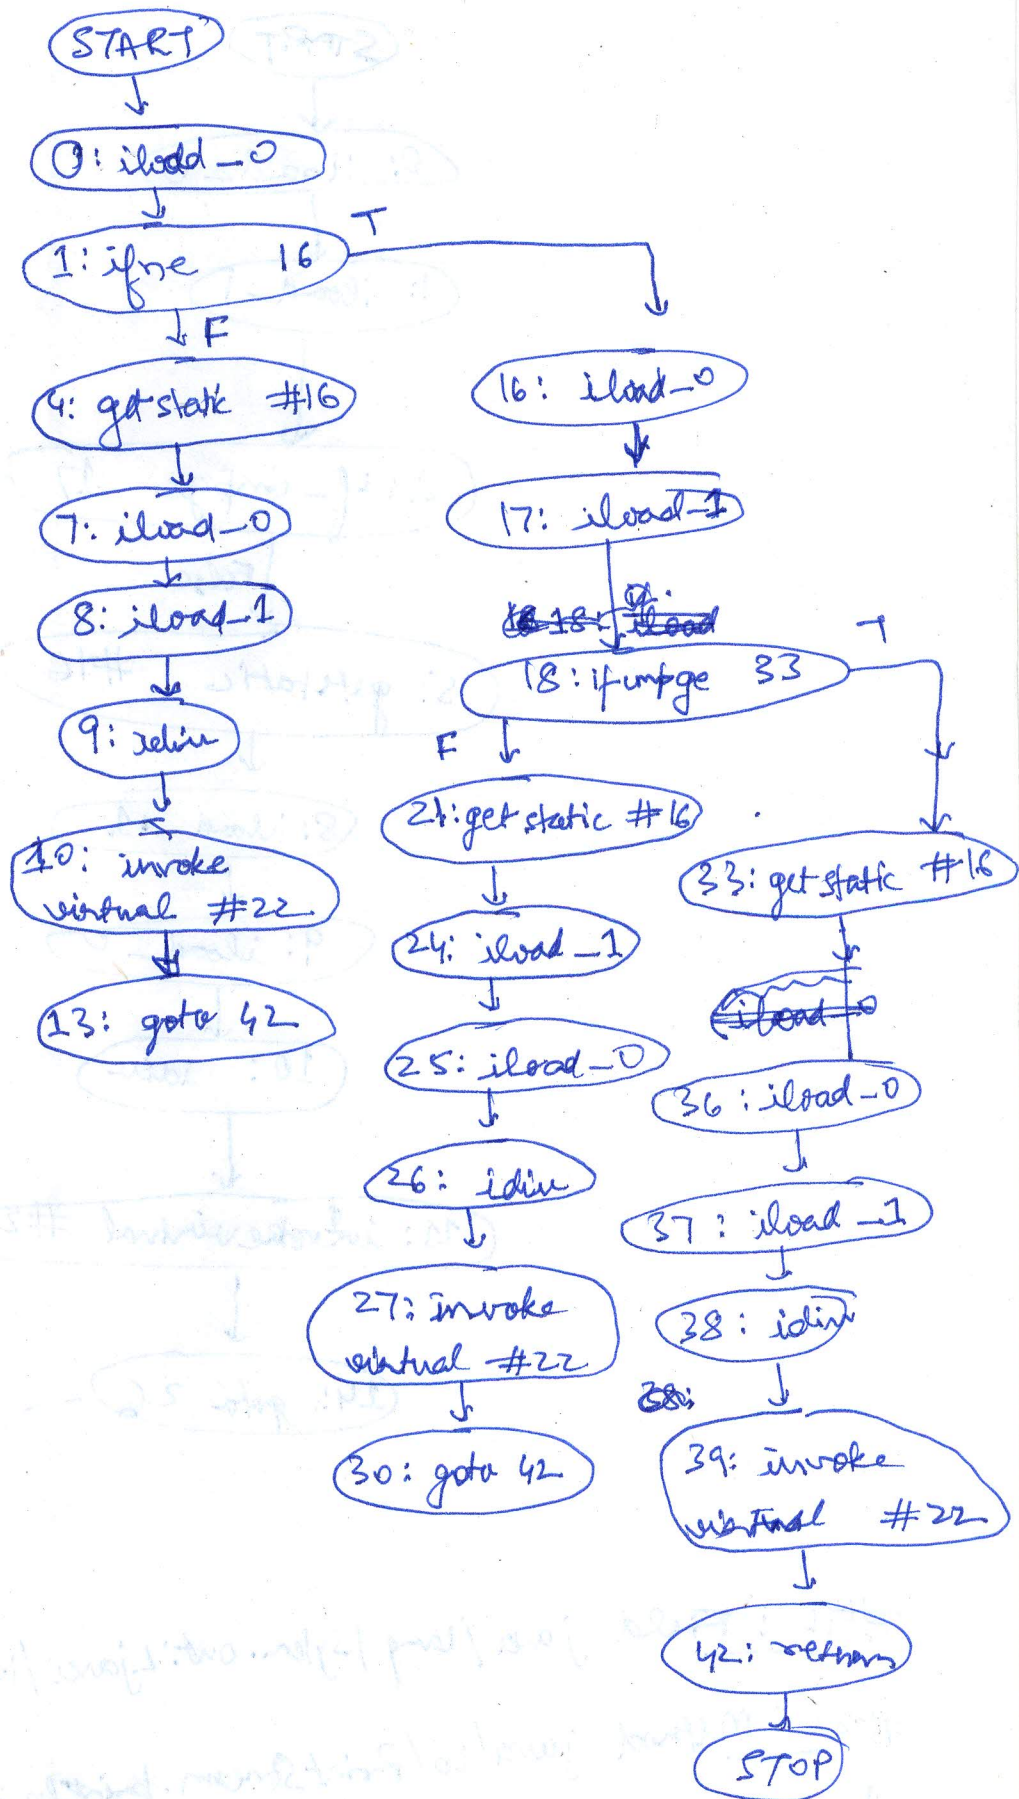 START
0: iload_0
1: ifne 16
T
F
4: getstatic #16
7: iload_0
8: iload_1
9: idiv
10: invoke
virtual #22
13: goto 42
16: iload_0
17: iload_1
18: ifcmpge 33
T
F
21: getstatic #16
24: iload_1
25: iload_0
26: idiv
27: invoke
virtual #22
30: goto 42
33: getstatic #16
36: iload_0
37: iload_1
38: idiv
39: invoke
virtual #22
42: return
STOP